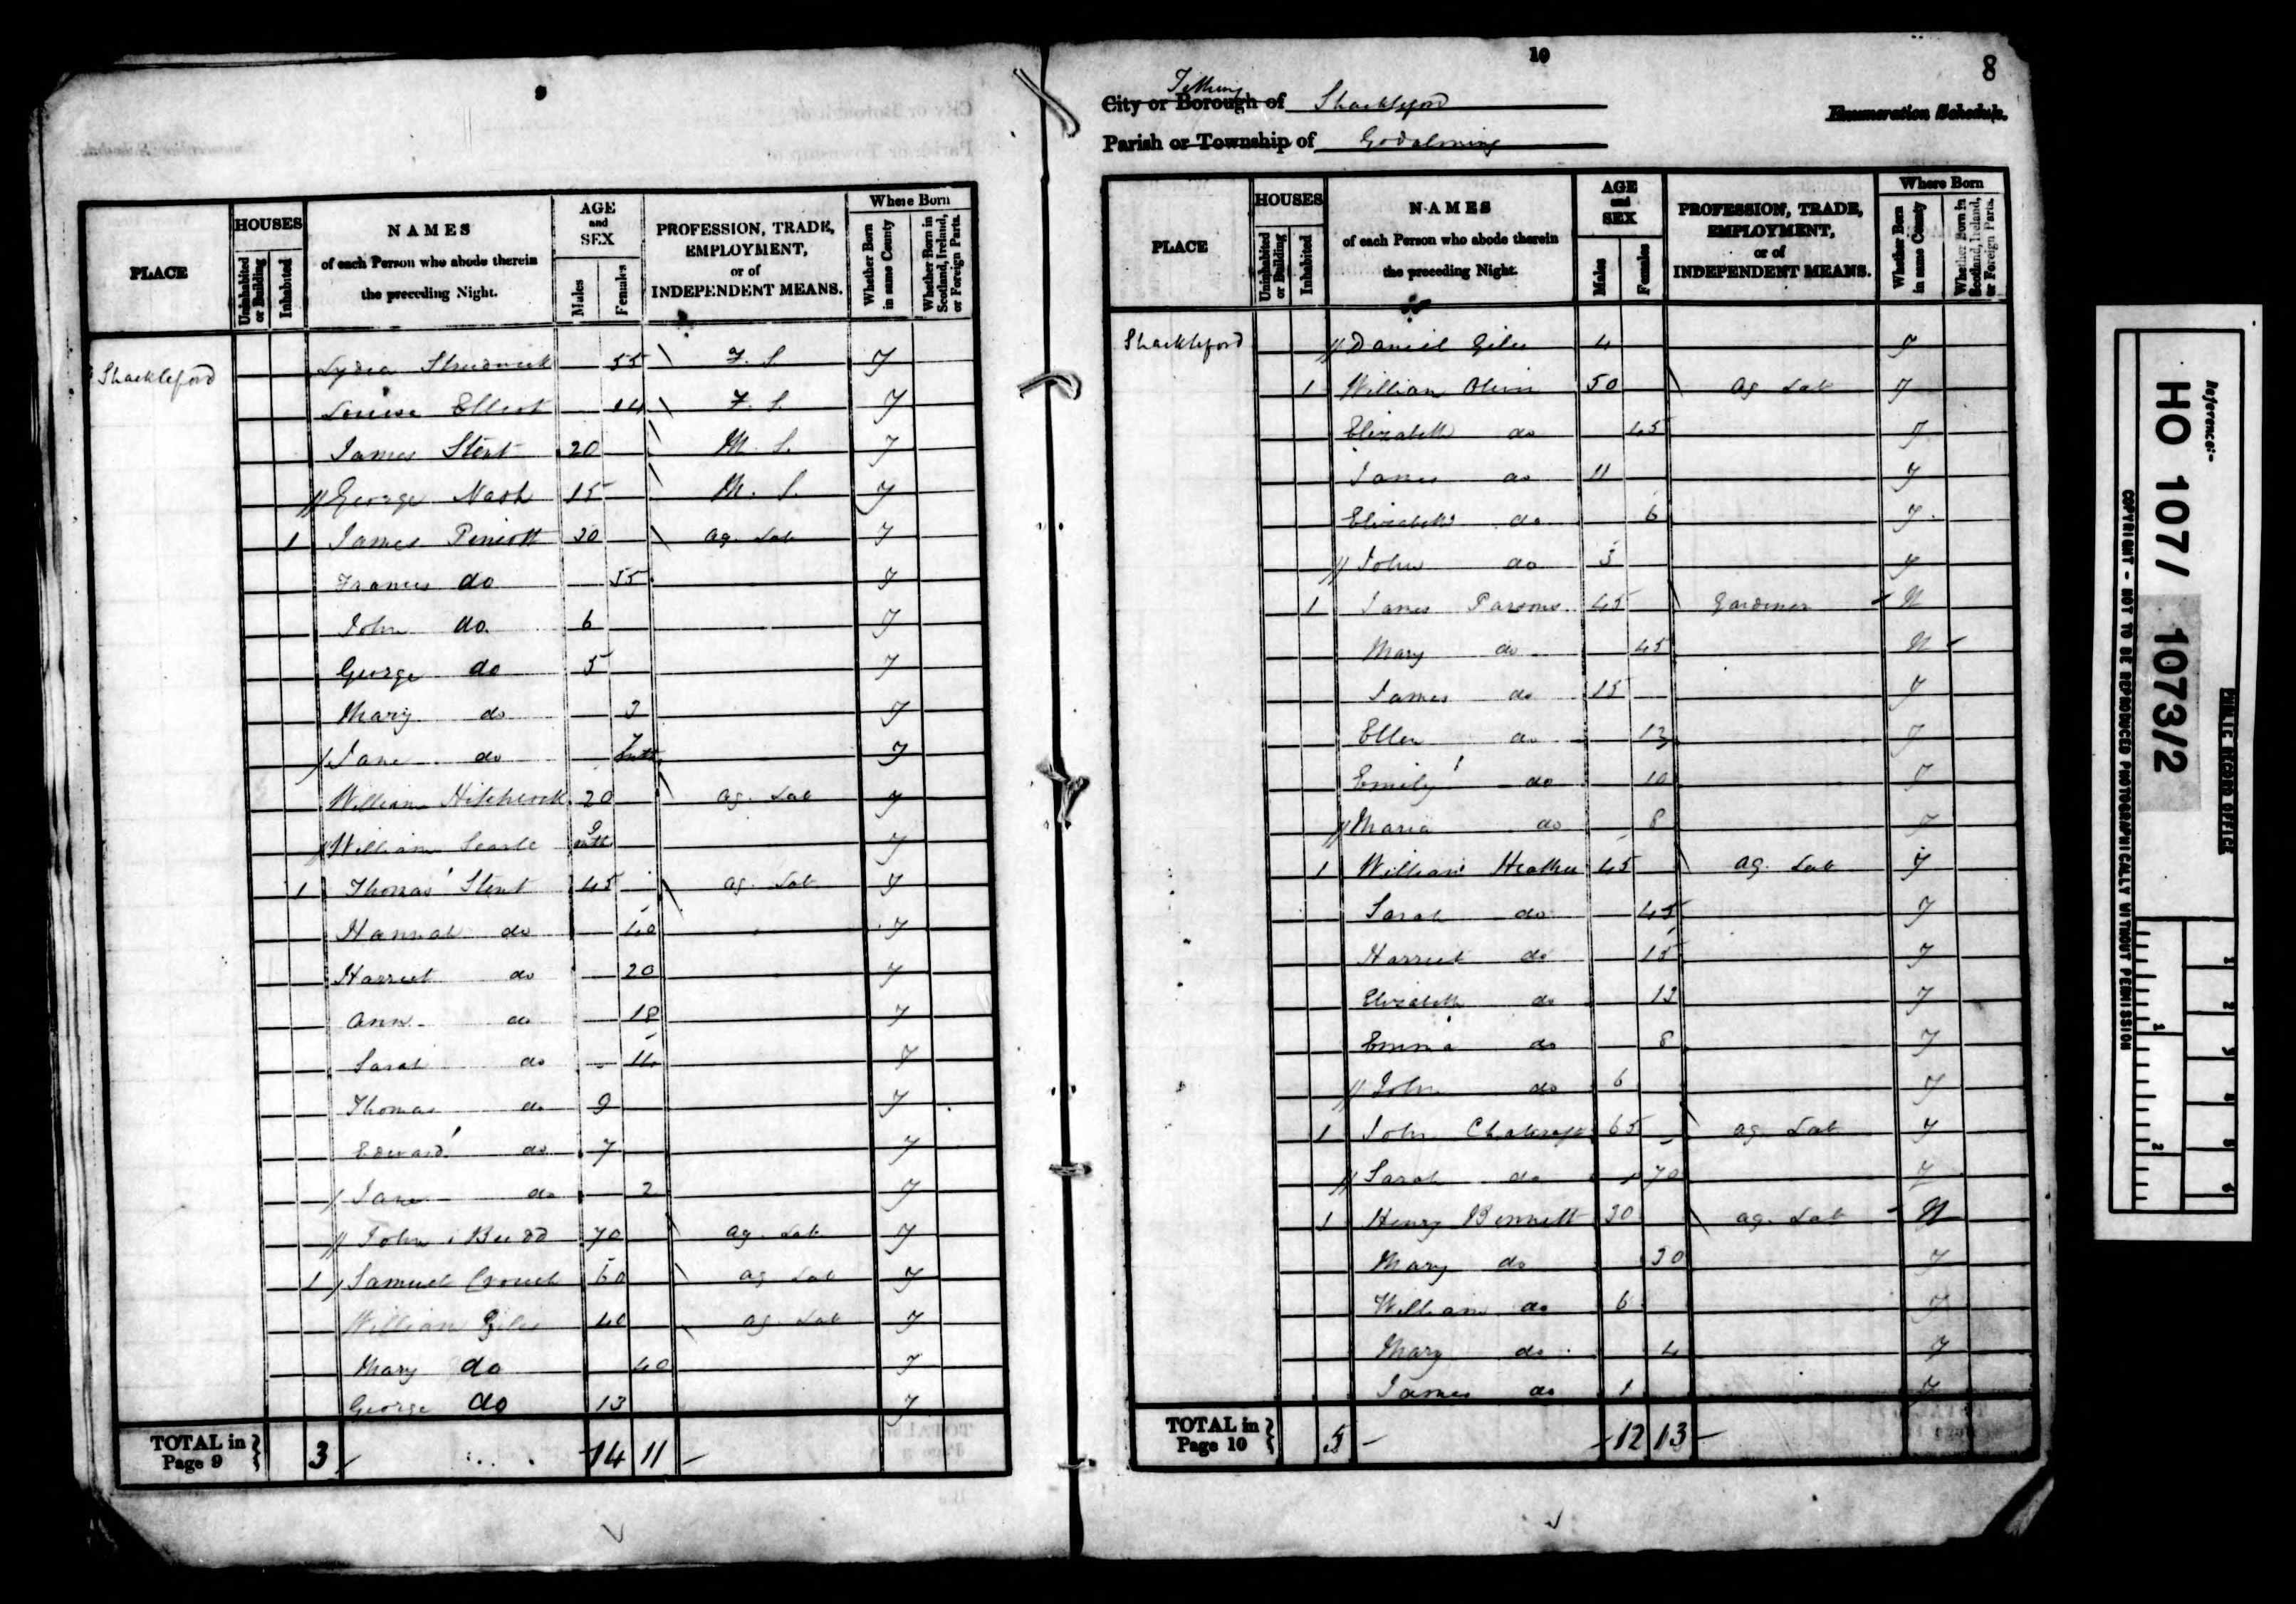 9
PLACE
HOUSES
Uninhabited or Building
Inhabited
NAMES
of each Person who abode therein
the preceding Night.
AGE
and
SEX
Males
Females
PROFESSION, TRADE,
EMPLOYMENT,
or of
INDEPENDENT MEANS.
Where Born
Whether Born in same County
Whether Born in Scotland, Ireland, or Foreign Parts.
Shackleford Lydia Strudwick 55 F. S. Y
Louisa Elliot 14 F. S. Y
James Stent 20 M. S. Y
// George Nash 15 M. S. Y
1 James Pincott 30 Ag. Lab Y
Frances do 35 Y
John do 6 Y
George do 5 Y
Mary do 3 Y
/ Jane do 7 mths Y
William Hitchcock 20 Ag. Lab Y
// William Searle 9 mths Y
1 Thomas Stent 45 Ag. Lab Y
Hannah do 40 Y
Harriet do 20 Y
Ann do 18 Y
Sarah do 14 Y
Thomas do 9 Y
Edward do 7 Y
/ Jane do 2 Y
// John Budd 70 Ag. Lab Y
1 / Samuel Crouch 60 Ag. Lab Y
William Giles 40 Ag. Lab Y
Mary do 40 Y
George do 13 Y
TOTAL in Page 9 3 14 11
10
8
Tithing
City or Borough of Shackleford
Enumeration Schedule.
Parish or Township of Godalming
PLACE
HOUSES
Uninhabited or Building
Inhabited
NAMES
of each Person who abode therein
the preceding Night.
AGE
and
SEX
Males
Females
PROFESSION, TRADE,
EMPLOYMENT,
or of
INDEPENDENT MEANS.
Where Born
Whether Born in same County
Whether Born in Scotland, Ireland, or Foreign Parts.
Shackleford // Daniel Giles 4 Y
1 William 50 Ag Lab Y
Elizabeth do 45 Y
James do 11 Y
Elizabeth do 6 Y
// John do 3 Y
1 James Parsons 45 Gardener N
Mary do 45 N
James do 15 Y
Ellen do 13 Y
Emily do 10 Y
// Maria do 8 Y
1 William Heather 45 Ag. Lab Y
Sarah do 45 Y
Harriet do 15 Y
Elizabeth do 13 Y
Emma do 8 Y
// John do 6 Y
1 John 65 Ag. Lab Y
// Sarah do 70 Y
1 Henry Bennett 30 Ag. Lab N
Mary do 30 Y
William do 6 Y
Mary do 4 Y
James do 1 Y
TOTAL in Page 10 5 12 13
Reference:-
HO 107/ 1073/2
PUBLIC RECORD OFFICE
COPYRIGHT - NOT TO BE REPRODUCED PHOTOGRAPHICALLY WITHOUT PERMISSION
1 2
1 2 3 4 5 6